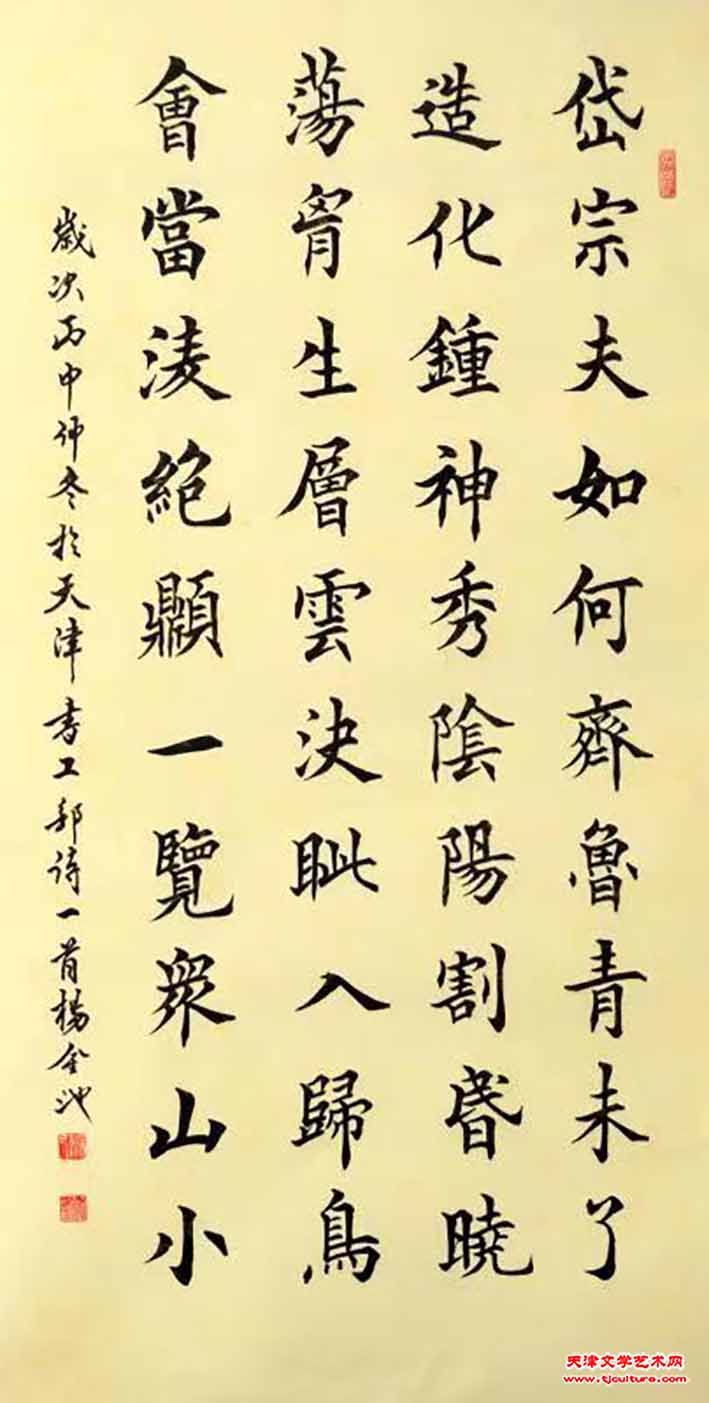 岱宗夫如何齊魯青未了
造化鍾神秀陰陽割昏曉
蕩胷生層雲決眦入歸鳥
會當淩絕顚一覽衆山小
歲次丙申仲冬於天津书工部诗一首楊全池
天津文学艺术网
www.tjculture.com